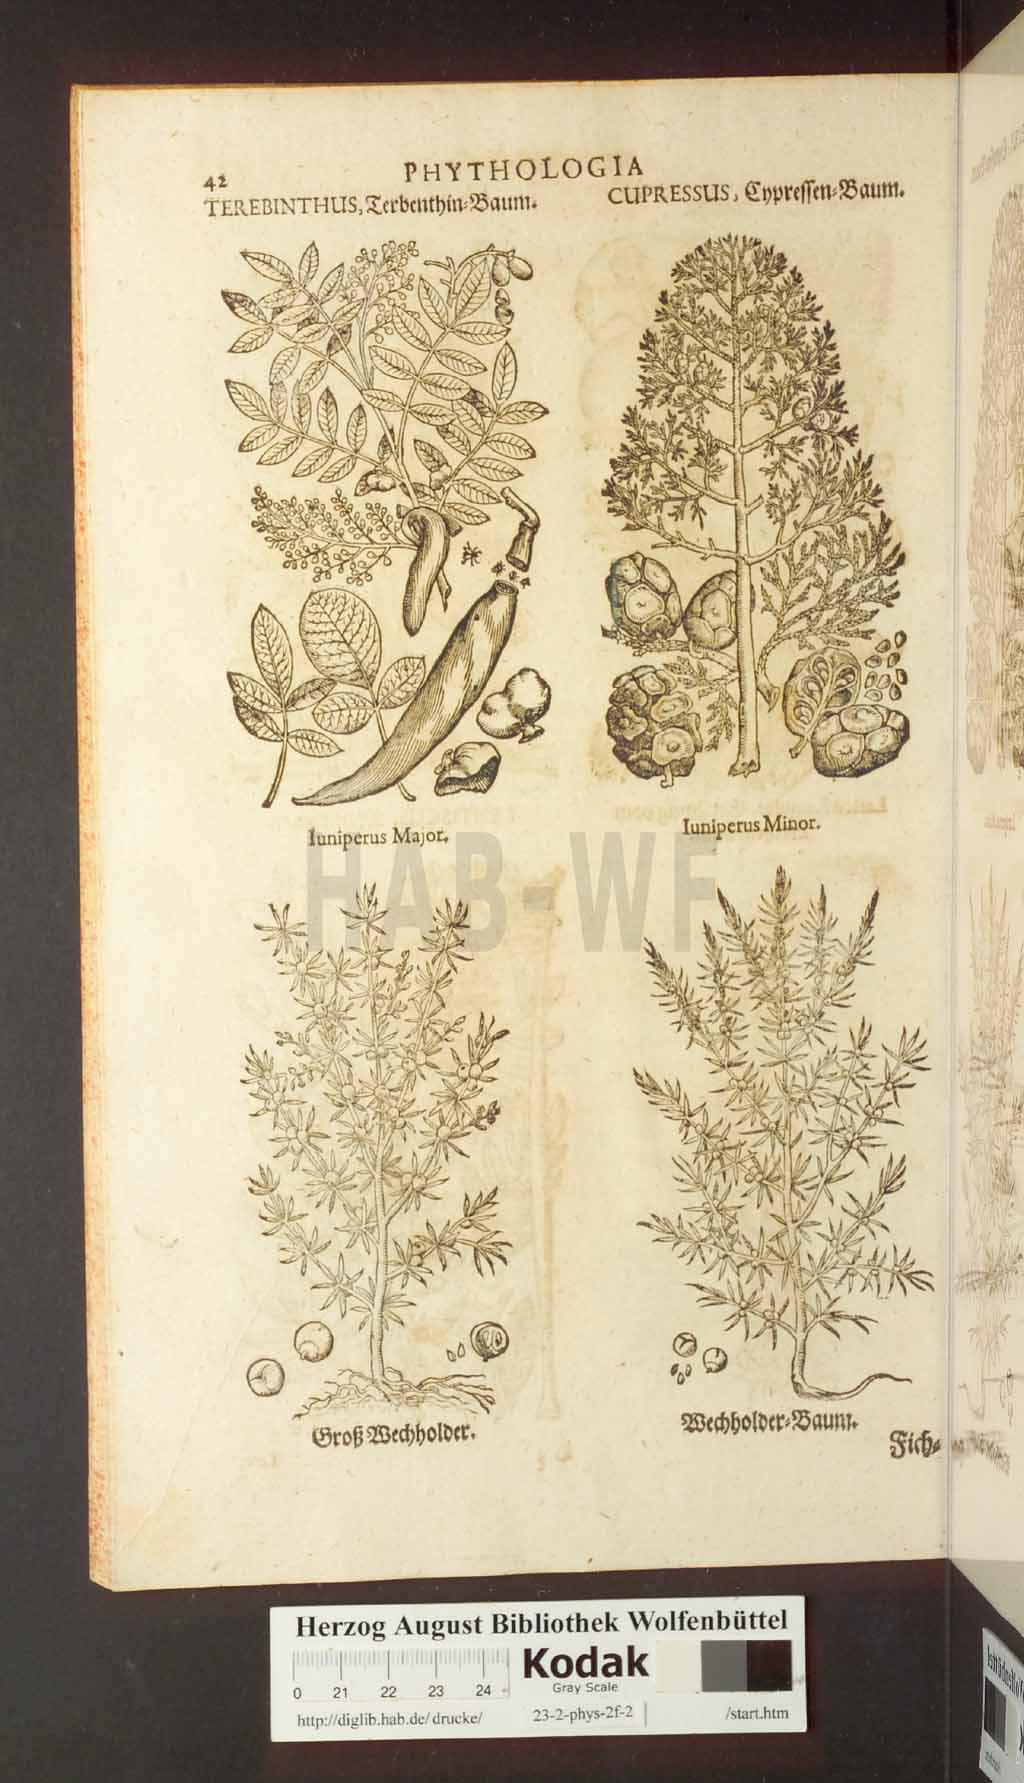 PHYTHOLOGIA
42
TEREBINTHUS, Terbenthin=Baum.
CUPRESSUS, Cypressen=Baum.
Iuniperus Major.
Iuniperus Minor.
HAB-WF
Groß Wechholder.
Wechholder=Baum.
Fich=
Herzog August Bibliothek Wolfenbüttel
0 21 22 23 24
Kodak
Gray Scale
http://diglib.hab.de/drucke/ 23-2-phys-2f-2 /start.htm